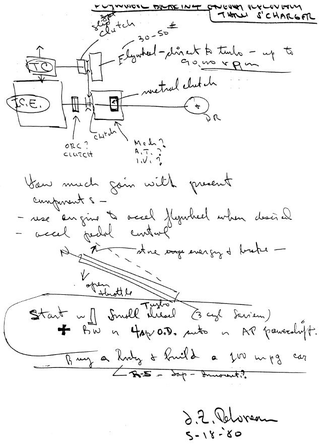 FLYWHEEL BRAKING ENERGY RECOVERY
THRU S'CHARGER
slip
clutch
30-50#
Flywheel - direct to turbo - up to
90,000 rpm
T.C.
I.C.E.
neutral clutch
DR
clutch
ORC?
CLUTCH
Mech?
A.T.?
I.V.?
How much gain with present
components -
- use engine to accel flywheel when desired
- accel pedal control
store energy & brake -
open
throttle
Turbo
Start w/ small diesel (3 cyl
+ BW 4sp O.D. auto AP powershift.
Buy a body & build a 100 mpg car
R-5 - Jap -
J. Z. DeLorean
5-18-80